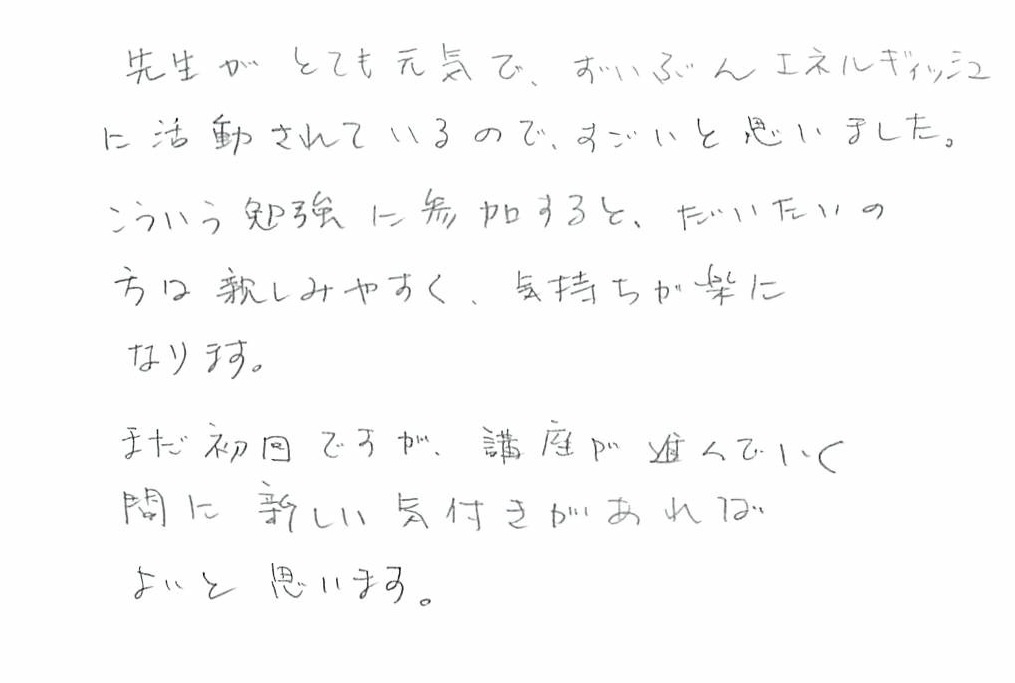 先生がとても元気で、ずいぶんエネルギィッシュ
に活動されているので、すごいと思いました。
こういう勉強に参加すると、だいたいの
方は親しみやすく、気持ちが楽に
なります。
まだ初回ですが、講座が進んでいく
間に新しい気付きがあれば
よいと思います。